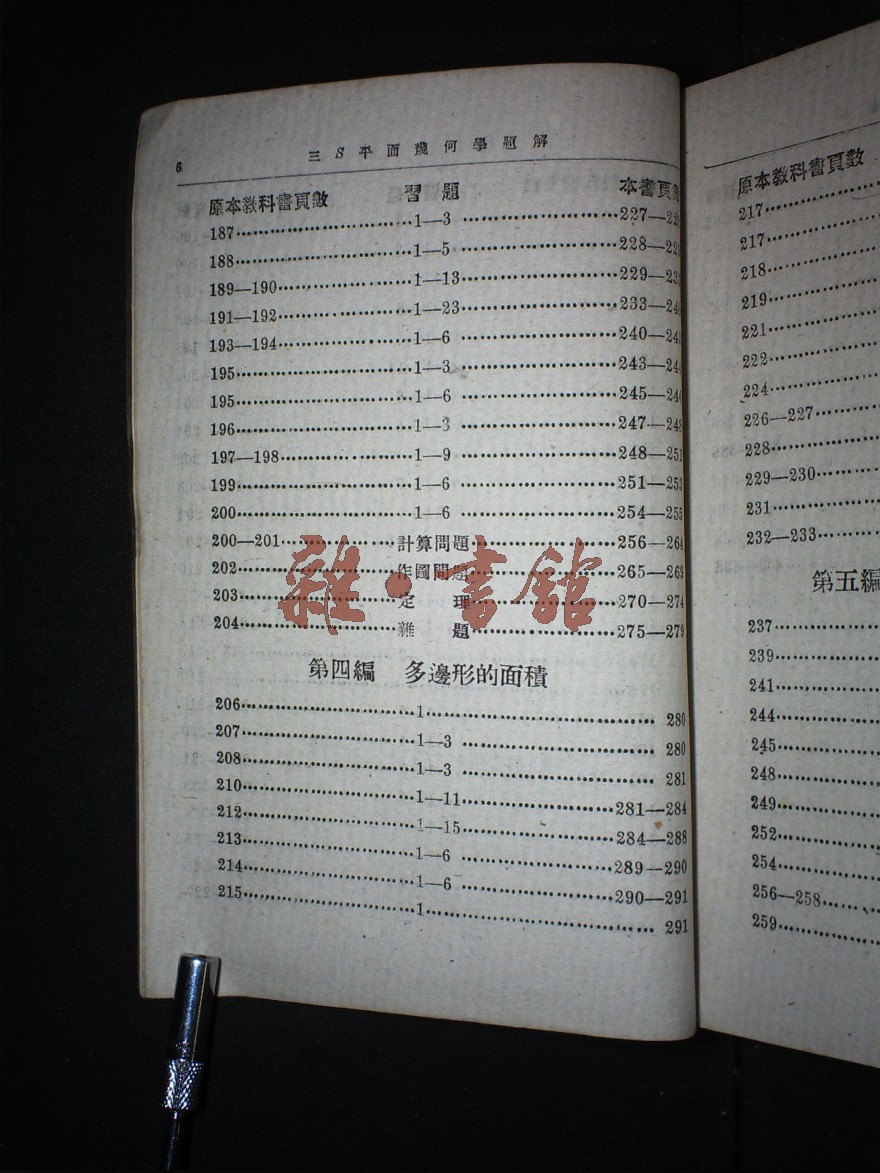 6
三S平面幾何學題解
原本教科書頁數 習題 本書頁
187 1—3 227—
188 1—5 228—
189—190 1—13 229—
191—192 1—23 233—
193—194 1—6 240—
195 1—3 243—
195 1—6 245—
196 1—3 247—248
197—198 1—9 248—251
199 1—6 251—253
200 1—6 254—255
200—201 計算問題 256—264
202 作圖問題 265—269
203 定理 270—274
204 雜題 275—279
雜·書館
第四編 多邊形的面積
206 1 280
207 1—3 280
208 1—3 281
210 1—11 281—284
212 1—15 284—288
213 1—6 289—290
214 1—6 290—291
215 1 291
原本教科書頁數
217
217
218
219
221
222
224
226—227
228
229—230
231
232—233
第五編
237
239
241
244
245
248
249
252
254
256—258
259